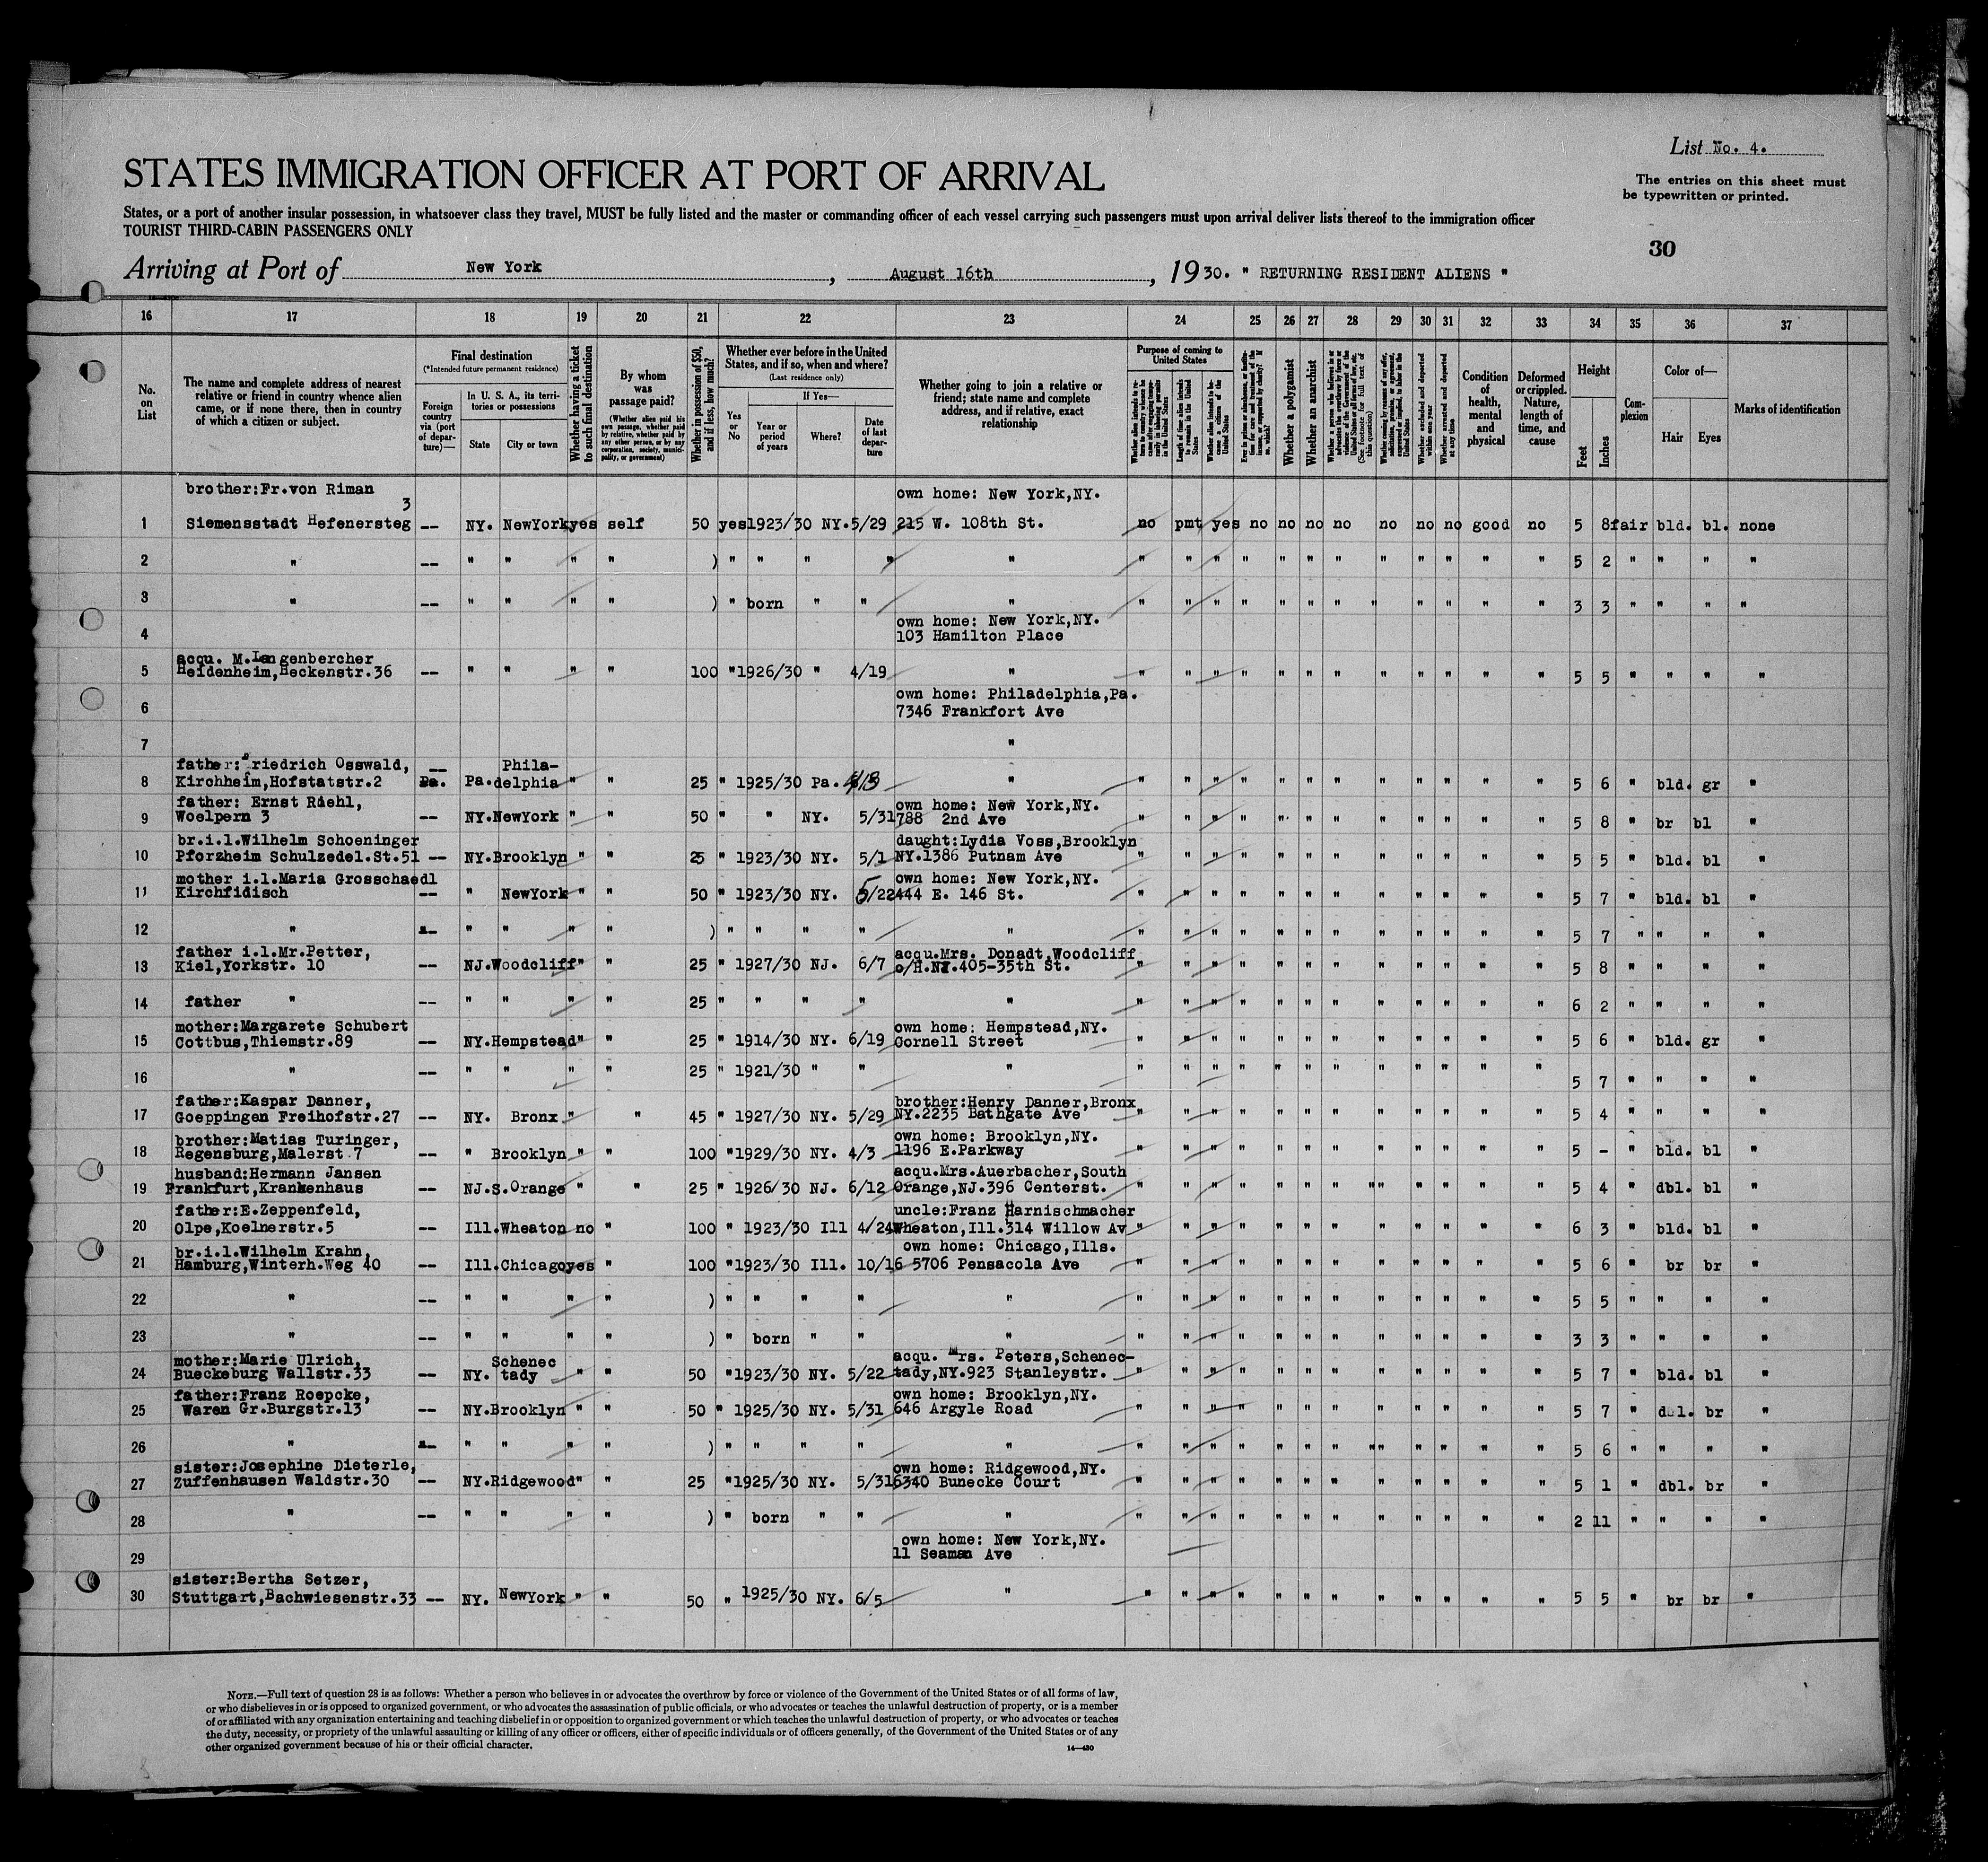 List No. 4.
STATES IMMIGRATION OFFICER AT PORT OF ARRIVAL
The entries on this sheet must
be typewritten or printed.
States, or a port of another insular possession, in whatsoever class they travel, MUST be fully listed and the master or commanding officer of each vessel carrying such passengers must upon arrival deliver lists thereof to the immigration officer
TOURIST THIRD-CABIN PASSENGERS ONLY
30
Arriving at Port of New York, August 16th, 1930. " RETURNING RESIDENT ALIENS "
16 17 18 19 20 21 22 23 24 25 26 27 28 29 30 31 32 33 34 35 36 37
No. on List
The name and complete address of nearest relative or friend in country whence alien came, or if none there, then in country of which a citizen or subject.
Final destination
(*Intended future permanent residence)
Foreign country via (port of departure)—
In U. S. A., its territories or possessions
State
City or town
Whether having a ticket to such final destination
By whom was passage paid?
(Whether alien paid his own passage, whether paid by relative, whether paid by any other person, or by any corporation, society, municipality, or government)
Whether in possession of $50, and if less, how much?
Whether ever before in the United States, and if so, when and where?
(Last residence only)
Yes or No
If Yes—
Year or period of years
Where?
Date of last departure
Whether going to join a relative or friend; state name and complete address, and if relative, exact relationship
Purpose of coming to United States
Whether a polygamist
Whether an anarchist
Condition of health, mental and physical
Deformed or crippled. Nature, length of time, and cause
Height
Feet
Inches
Complexion
Color of—
Hair
Eyes
Marks of identification
brother:Fr.von Riman own home: New York,NY.
3
1 Siemensstadt Hefenersteg -- NY. NewYork yes self 50 yes 1923/30 NY. 5/29 215 W. 108th St. no pmt yes no no no no no no no good no 5 8 fair bld. bl. none
2 " -- " " " " ) " " " " " " " " " " " " " " " " " 5 2 " " " "
3 " -- " " " " ) " born " " " " " " " " " " " " " " " 3 3 " " " "
own home: New York,NY.
4 103 Hamilton Place
acqu. M.Langenbercher
5 Heidenheim,Heckenstr.36 -- " " " " 100 " 1926/30 " 4/19 " " " " " " " " " " " " " 5 5 " " " "
own home: Philadelphia,Pa.
6 7346 Frankfort Ave
7 "
father:Friedrich Osswald, -- Phila-
8 Kirchheim,Hofstatstr.2 Pa. Pa. delphia " " 25 " 1925/30 Pa. " " " " " " " " " " " " " 5 6 " bld. gr "
father: Ernst Riehl, own home: New York,NY.
9 Woelpern 3 -- NY. NewYork " " 50 " " NY. 5/31 788 2nd Ave " " " " " " " " " " " " 5 8 " br bl "
br.i.l.Wilhelm Schoeninger daught:Lydia Voss,Brooklyn
10 Pforzheim Schulzedel.St.51 -- NY. Brooklyn " " 25 " 1923/30 NY. 5/1 NY.1386 Putnam Ave " " " " " " " " " " " " 5 5 " bld. bl "
mother i.l.Maria Grosschaedl own home: New York,NY.
11 Kirchfidisch -- " NewYork " " 50 " 1923/30 NY. 5/22 444 E. 146 St. " " " " " " " " " " " " 5 7 " bld. bl "
12 " -- " " " " ) " " " " " " " " " " " " " " " " " 5 7 " " " "
father i.l.Mr.Petter, acqu.Mrs. Donadt,Woodcliff
13 Kiel,Yorkstr. 10 -- NJ. Woodcliff " " 25 " 1927/30 NJ. 6/7 405-35th St. " " " " " " " " " " " " 5 8 " " " "
14 father " -- " " " " 25 " " " " " " " " " " " " " " " " " 6 2 " " " "
mother:Margarete Schubert own home: Hempstead,NY.
15 Cottbus,Thiemstr.89 -- NY. Hempstead " " 25 " 1914/30 NY. 6/19 Cornell Street " " " " " " " " " " " " 5 6 " bld. gr "
16 " -- " " " " 25 " 1921/30 " " " " " " " " " " " " " " " 5 7 " " " "
father:Kaspar Danner, brother:Henry Danner,Bronx
17 Goeppingen Freihofstr.27 -- NY. Bronx " " 45 " 1927/30 NY. 5/29 NY.2235 Bathgate Ave " " " " " " " " " " " " 5 4 " " " "
brother:Matias Turinger, own home: Brooklyn,NY.
18 Regensburg,Malerst 7 -- " Brooklyn " " 100 " 1929/30 NY. 4/3 1196 E.Parkway " " " " " " " " " " " " 5 - " bld. bl "
husband:Hermann Jansen acqu.Mrs.Auerbacher,South
19 Frankfurt,Krankenhaus -- NJ. S.Orange " " 25 " 1926/30 NJ. 6/12 Orange,NJ.396 Centerst. " " " " " " " "" " " " " 5 4 " dbl. bl "
father:E.Zeppenfeld, uncle:Franz Harnischmacher
20 Olpe,Koelnerstr.5 -- Ill. Wheaton no " 100 " 1923/30 Ill 4/24 Wheaton,Ill.314 Willow Av " " " " " " " " " " " " 6 3 " bld. bl "
br.i.l.Wilhelm Krahn, own home: Chicago,Ills.
21 Hamburg,Winterh.Weg 40 -- Ill. Chicago yes " 100 " 1923/30 Ill. 10/16 5706 Pensacola Ave " " " " " " " " " " " " 5 6 " br br "
22 " -- " " " " ) " " " " " " " " " " " " " " " " " 5 5 " " " "
23 " -- " " " " ) " born " " " " " " " " " " " " " " " 3 3 " " " "
mother:Marie Ulrich, Schenec acqu. Mrs. Peters,Schenec-
24 Bueckeburg Wallstr.33 -- NY. tady " " 50 " 1923/30 NY. 5/22 tady,NY.923 Stanleystr. " " " " " " " " " " " " 5 7 " bld. bl "
father:Franz Roepcke, own home: Brooklyn,NY.
25 Waren Gr.Burgstr.13 -- NY. Brooklyn " " 50 " 1925/30 NY. 5/31 646 Argyle Road " " " " " " " " " " " " 5 7 " dbl. br "
26 " -- " " " " ) " " " " " " " " " " " "" " " " " " 5 6 " " " "
sister:Josephine Dieterle, own home: Ridgewood,NY.
27 Zuffenhausen Waldstr.30 -- NY. Ridgewood " " 25 " 1925/30 NY. 5/31 6340 Bunecke Court " " " " " " " " " " " " 5 1 " dbl. br "
28 " -- " " " " ) " born " " " " " " " " " " " " " " " 2 11 " " " "
own home: New York,NY.
29 11 Seaman Ave
sister:Bertha Setzer,
30 Stuttgart,Bachwiesenstr.33 -- NY. NewYork " " 50 " 1925/30 NY. 6/5 " " " " " " " " " " " " " 5 5 " br br "
NOTE.—Full text of question 28 is as follows: Whether a person who believes in or advocates the overthrow by force or violence of the Government of the United States or of all forms of law,
or who disbelieves in or is opposed to organized government, or who advocates the assassination of public officials, or who advocates or teaches the unlawful destruction of property, or is a member
of or affiliated with any organization entertaining and teaching disbelief in or opposition to organized government or which teaches the unlawful destruction of property, or who advocates or teaches
the duty, necessity, or propriety of the unlawful assaulting or killing of any officer or officers, either of specific individuals or of officers generally, of the Government of the United States or of any
other organized government because of his or their official character.
14—430